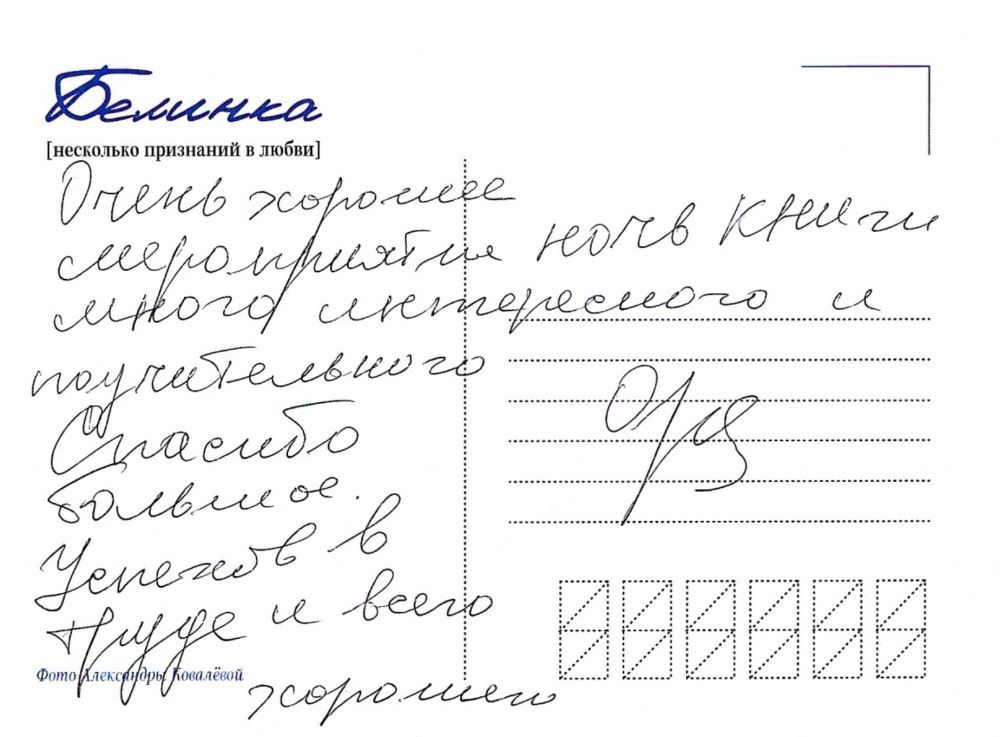 Белинка
[несколько признаний в любви]
Очень хорошее
мероприятие ночь книги
много интересного и
поучительного
Спасибо
большое.
Успехов в
труде и всего
хорошего
Фото Александры Ковалёвой